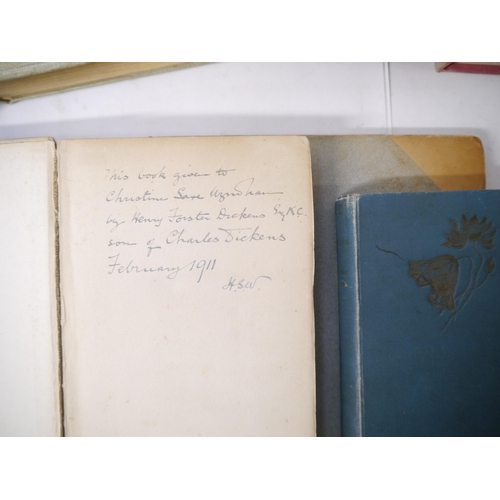 This book given to
Christine Saxe Wyndham
by Henry Forster Dickens Esq K.C.
son of Charles Dickens
February 1911
H.S.W.